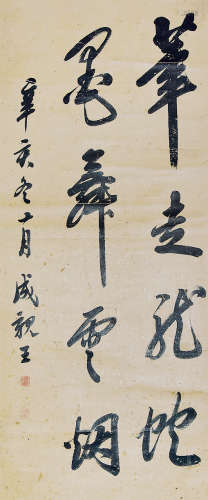 筆走龍蛇
墨舞雲烟
辛亥冬十月成親王